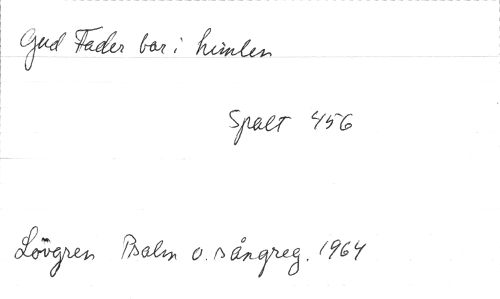 Gud Fader bor i himlen
Spalt 456
Lövgren Psalm o. sångreg. 1964